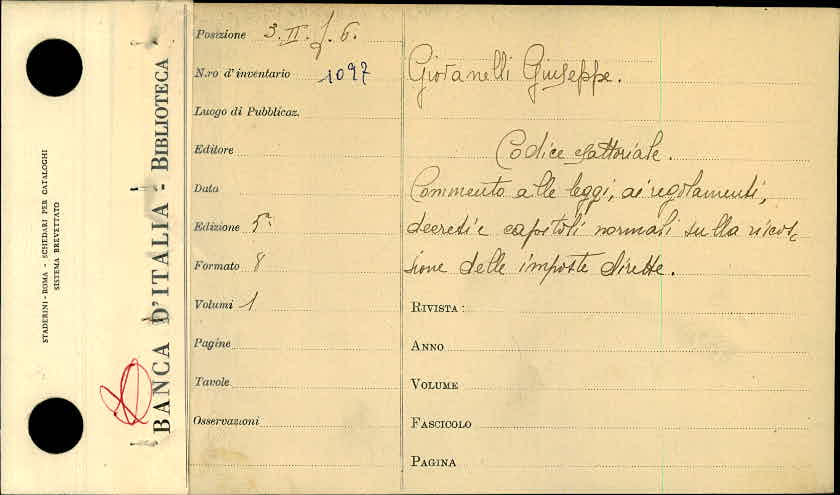 STADERINI - ROMA - SCHEDARI PER CATALOGHI
SISTEMA BREVETTATO
BANCA D'ITALIA - BIBLIOTECA
Posizione 3. II. f. 6.
N.ro d'inventario 1097
Luogo di Pubblicaz.
Editore
Data
Edizione 5ª
Formato 8
Volumi 1
Pagine
Tavole
Osservazioni
Giovanelli Giuseppe.
Codice esattoriale.
Commento alle leggi, ai regolamenti,
decreti e capitoli normali sulla riscos-
sione delle imposte dirette.
RIVISTA :
ANNO
VOLUME
FASCICOLO
PAGINA